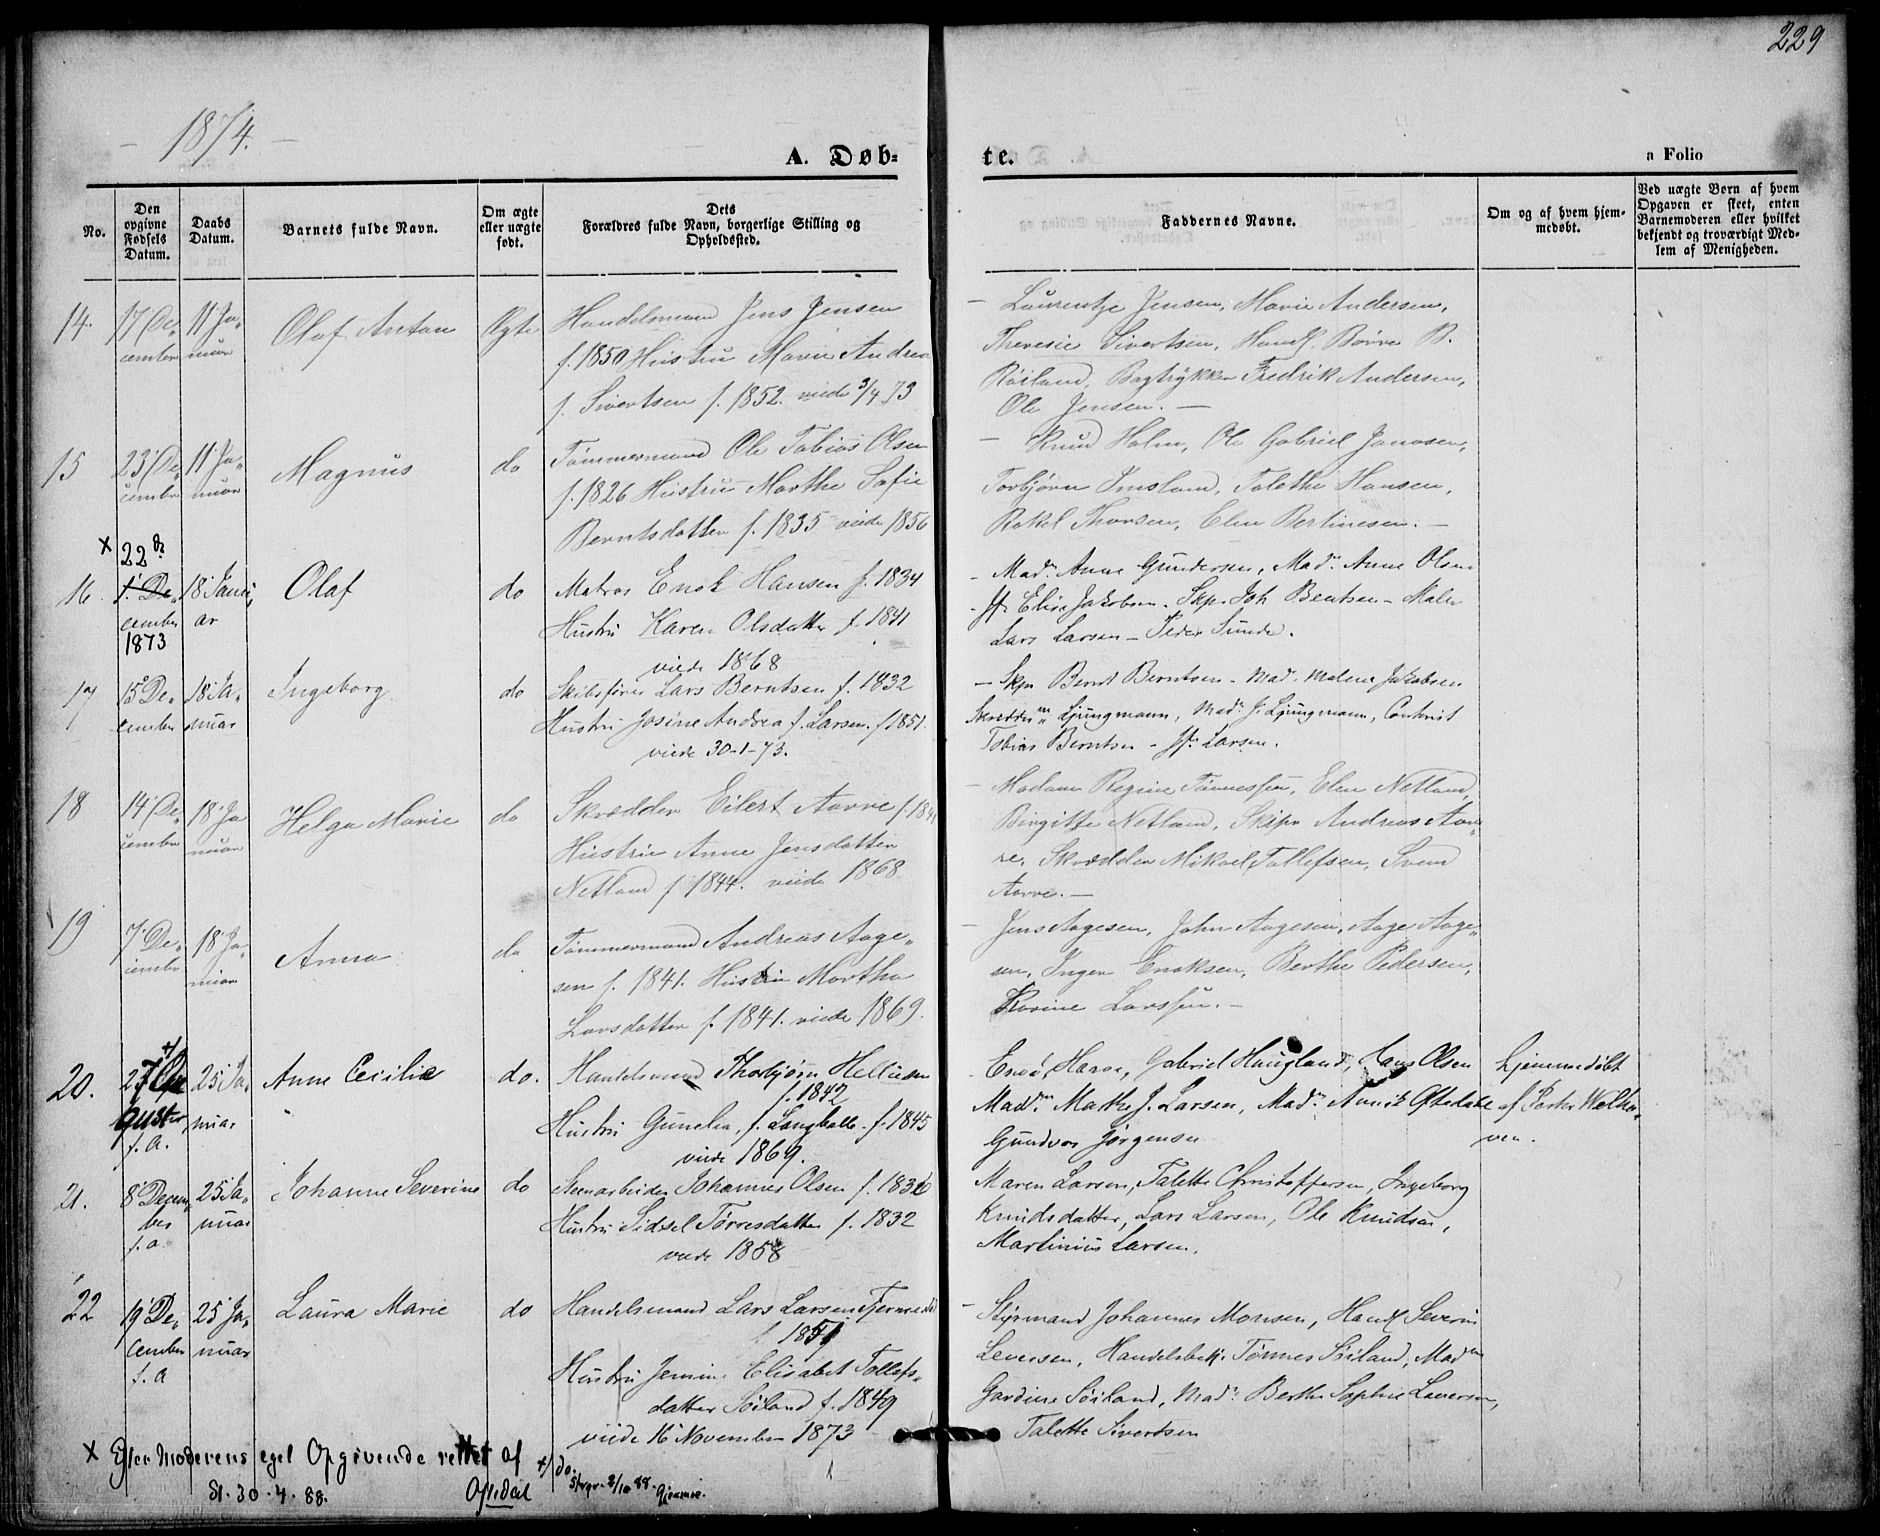 229
1874.
A. Døb-
te.
a Folio
No.
Den
opgivne
Fødsels
Datum.
Daabs
Datum.
Barnets fulde Navn.
Om ægte
eller uægte
født.
Dets
Forældres fulde Navn, borgerlige Stilling og
Opholdssted.
Faddernes Navne.
Om og af hvem hjem-
medøbt.
Ved uægte Børn af hvem
Opgaven er skeet, enten
Barnemoderen eller hvilket
bekjendt og troværdigt Med-
lem af Menigheden.
14.
17 De-
cember
11 Ja-
nuar
Olaf Anton
Ægte
Handelsmand Jens Jensen
f. 1850 Hustru Marie Andrea
f. Sivertsen f. 1852. viede 3/4 73
Laurentze Jensen, Marie Andersen,
Theresie Sivertsen, Handl. Børre B.
Röiland, Bogtrykker Fredrik Andersen,
Ole Jensen. —
15
23 De-
cember
11 Ja-
nuar
Magnus
do
Tømmermand Ole Tobias Olsen
f. 1826 Hustru Marthe Sofie
Berntsdatter f. 1835 viede 1856
Knud Holm, Ole Gabriel Jonasen,
Torbjörn Imsland, Talette Hansen,
Rakel Thorsen, Elen Bertinesen. —
16.
x 22d
1 De-
cember
1873
18 Janu-
ar
Olaf
do
Matros Enok Hansen f. 1834
Hustru Karen Olsdatter f. 1841
viede 1868
Mad. Anne Gundersen, Mad. Anne Olsen
Jf. Elise Jakobsen. Skpr. Joh Bentsen - Maler
Lars Larsen - Peder Sunde.
17
15 De-
cember
18 Ja-
nuar
Ingeborg
do
Skibsfører Lars Berntsen f. 1832
Hustru Josine Andrea f. Larsen f 1851.
viede 30-1-73.
Skpr Bernt Berntsen - Mad. Malene Jakobsen
Skræddrm. Ljungmann, Mad. J. Ljungmann,
Tobias Berntsen - Jf. Larsen.
18
14 De-
cember
18 Ja
nuar
Helga Marie
do
Skrædder Eilert Aarre f. 1841
Hustru Anne Jensdatter
Netland f 1844. viede 1868
Madam Regine Tönnessen, Elen Netland,
Birgitte Netland, Skipr Andreas Aar-
re, Skrædder Mikael Tollefsen, Svend
Aarre. —
19
7 De-
cember
18 Ja-
nuar
Anna
do
Tømmermand Andreas Aage-
sen f. 1841. Hustru Martha
Larsdatter f. 1841. viede 1869.
Jens Aagesen, John Aagesen, Aage Aage-
sen, Inger Enoksen, Berthe Pedersen,
Karine Larssen. —
20.
25 Ja-
nuar
f. A.
Anne Cecilie
do.
Handelsmand Thorbjørn Helliesen
f. 1842
Hustru Gunelia, f. Langballe f. 1845
viede 1869.
Gabriel Haugland, Hans Olsen
Madm. Mathe J. Larsen, Madm. Oftedal
Gundvor Jørgensen
hjemmedøbt
af Pastor Welha-
ven.
21.
8 Decem-
ber
f. a.
25 Ja-
nuar
Johanne Severine
do
Steenarbeider Johannes Olsen f. 1830
Hustru Sidsel Tørresdatter f. 1832
viede 1858
Maren Larsen, Talette Christoffersen, Ingeborg
Knudsdatter, Lars Larsen, Ole Knudsen,
Martinius Larsen.
22
19 De-
cember
f. A
25 Ja-
nuar
Laura Marie
do
Handelsmand Lars Larsen
f. 1851
Hustru Elisabet Tollefs-
datter Söiland f. 1849
viede 16 November 1873
Styrmand Johannes Monsen, Handl Severin
Leversen, Handelsbetj. Tønnes Söiland, Madm
Gardine Söiland, Mad. Berthe Sophie Leversen,
Talette Sivertsen
x Efter Moderens eget Opgivende rettet af
St. 30-4-88.
Oftedal
+/ do.
Stvgr. 2/10 88.